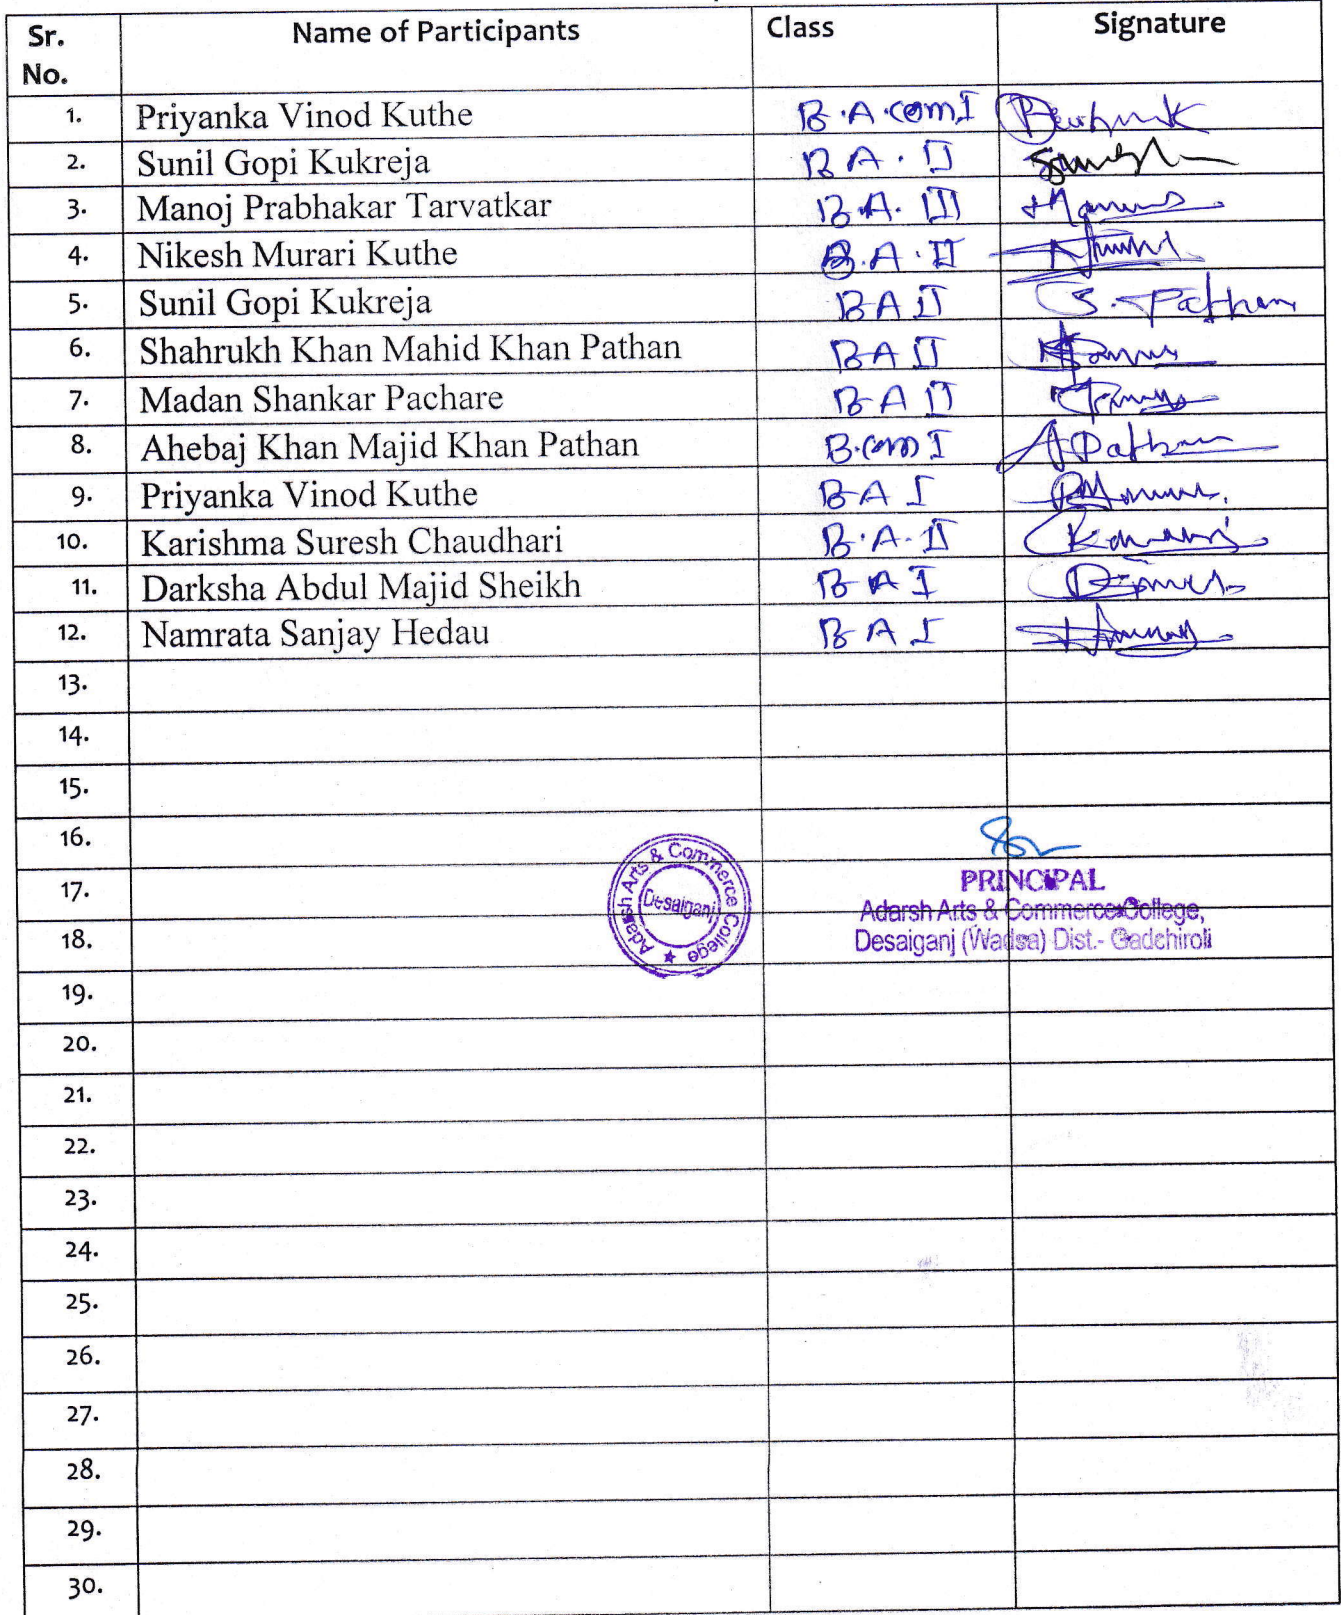 Sr. No. Name of Participants Class Signature
1. Priyanka Vinod Kuthe B.A.com I
2. Sunil Gopi Kukreja B A . II
3. Manoj Prabhakar Tarvatkar B.A. III
4. Nikesh Murari Kuthe B.A. II
5. Sunil Gopi Kukreja B A II S. Pathan
6. Shahrukh Khan Mahid Khan Pathan B A II
7. Madan Shankar Pachare B A II
8. Ahebaj Khan Majid Khan Pathan B.com I A Pathan
9. Priyanka Vinod Kuthe B A I
10. Karishma Suresh Chaudhari B.A. II
11. Darksha Abdul Majid Sheikh B A I
12. Namrata Sanjay Hedau B A I
13.
14.
15.
16.
17. Adarsh Arts & Commerce College Desaiganj PRINCIPAL
Adarsh Arts & Commerce College,
18. Desaiganj (Wadsa) Dist.- Gadchiroli
19.
20.
21.
22.
23.
24.
25.
26.
27.
28.
29.
30.